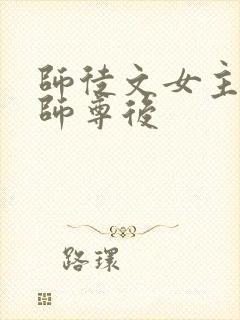 師徒文女主
師尊後
路環